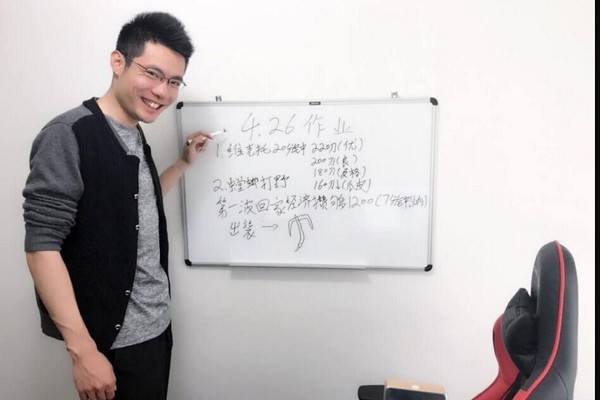 4.26 作业
1.维克托 20分钟 220刀(优)
200刀(良)
180刀(及格)
160刀
2.螳螂打野
第一波回家经济攒够1200(7分钟内)
出装 →